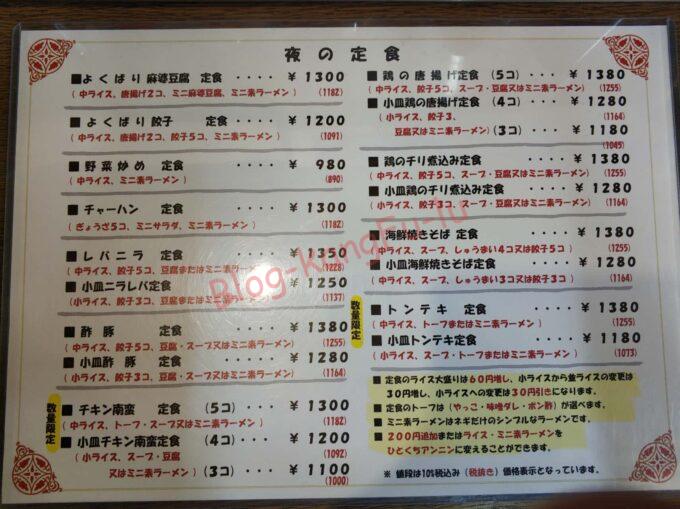 夜の定食
■よくばり麻婆豆腐 定食 ・・・・ ¥ 1300
( 中ライス、唐揚げ2コ、ミニ麻婆豆腐、ミニ素ラーメン ) (1182)
■よくばり餃子 定食 ・・・・ ¥ 1200
( 中ライス、唐揚げ2コ、餃子5コ、ミニ素ラーメン ) (1091)
■野菜炒め 定食 ・・・・ ¥ 980
( 中ライス、ミニ素ラーメン ) (890)
■チャーハン 定食 ・・・・ ¥ 1300
( ぎょうざ5コ、ミニサラダ、ミニ素ラーメン ) (1182)
■レバニラ 定食 ・・・・ ¥ 1350
( 中ライス、餃子5コ、豆腐またはミニ素ラーメン ) (1228)
■小皿ニラレバ定食 ・・・・ ¥ 1250
( 小ライス、餃子3コ、豆腐またはミニ素ラーメン ) (1137)
■酢豚 定食 ・・・・ ¥ 1380
( 中ライス、餃子5コ、豆腐・スープ又はミニ素ラーメン ) (1255)
■小皿酢豚 定食 ・・・・・ ¥ 1280
( 小ライス、餃子3コ、豆腐・スープ又はミニ素ラーメン ) (1164)
数量限定
■チキン南蛮 定食 (5コ) ・・・ ¥ 1300
( 中ライス、トーフ・スープ又はミニ素ラーメン ) (1182)
■小皿チキン南蛮定食 (4コ)・・・ ¥ 1200
( 小ライス、スープ・豆腐 (1092)
又はミニ素ラーメン ) (3コ) ・・・ ¥ 1100
(1000)
■鶏の唐揚げ定食 (5コ) ・・ ¥ 1380
( 中ライス、餃子5コ、スープ・豆腐又はミニ素ラーメン ) (1255)
■小皿鶏の唐揚げ定食 (4コ) ・ ¥ 1280
( 小ライス、餃子3、 (1164)
豆腐又はミニ素ラーメン ) (3コ) ・ ¥ 1180
(1045)
■鶏のチリ煮込み定食 ・・・・ ¥ 1380
( 中ライス、餃子5コ、スープ・豆腐又はミニ素ラーメン ) (1255)
■小皿鶏のチリ煮込み定食 ・・・ ¥ 1280
( 小ライス、餃子3コ、スープ・豆腐又はミニ素ラーメン ) (1164)
■海鮮焼きそば 定食 ・・・・ ¥ 1380
( 中ライス、スープ、しゅうまい4コ又は餃子5コ ) (1255)
■小皿海鮮焼きそば定食 ・・・・ ¥ 1280
( 小ライス、スープ、しゅうまい3コ又は餃子3コ ) (1164)
数量限定
■トンテキ 定食 ・・・・ ¥ 1380
( 中ライス、スープ、トーフまたはミニ素ラーメン ) (1255)
■小皿トンテキ定食 ・・・・ ¥ 1180
( 小ライス、スープ・トーフまたはミニ素ラーメン ) (1073)
■ 定食のライス大盛りは60円増し、小ライスから並ライスの変更は
30円増し、小ライスへの変更は30円引きになります。
■ 定食のトーフは(やっこ・味噌ダレ・ポン酢)が選べます。
■ ミニ素ラーメンはネギだけのシンプルなラーメンです。
■ 200円追加またはライス・ミニラーメンを
ひとくちアンニンに変えることができます。
※ 値段は10%税込み(税抜き)価格表示となっています。
Blog-KungFu-fu